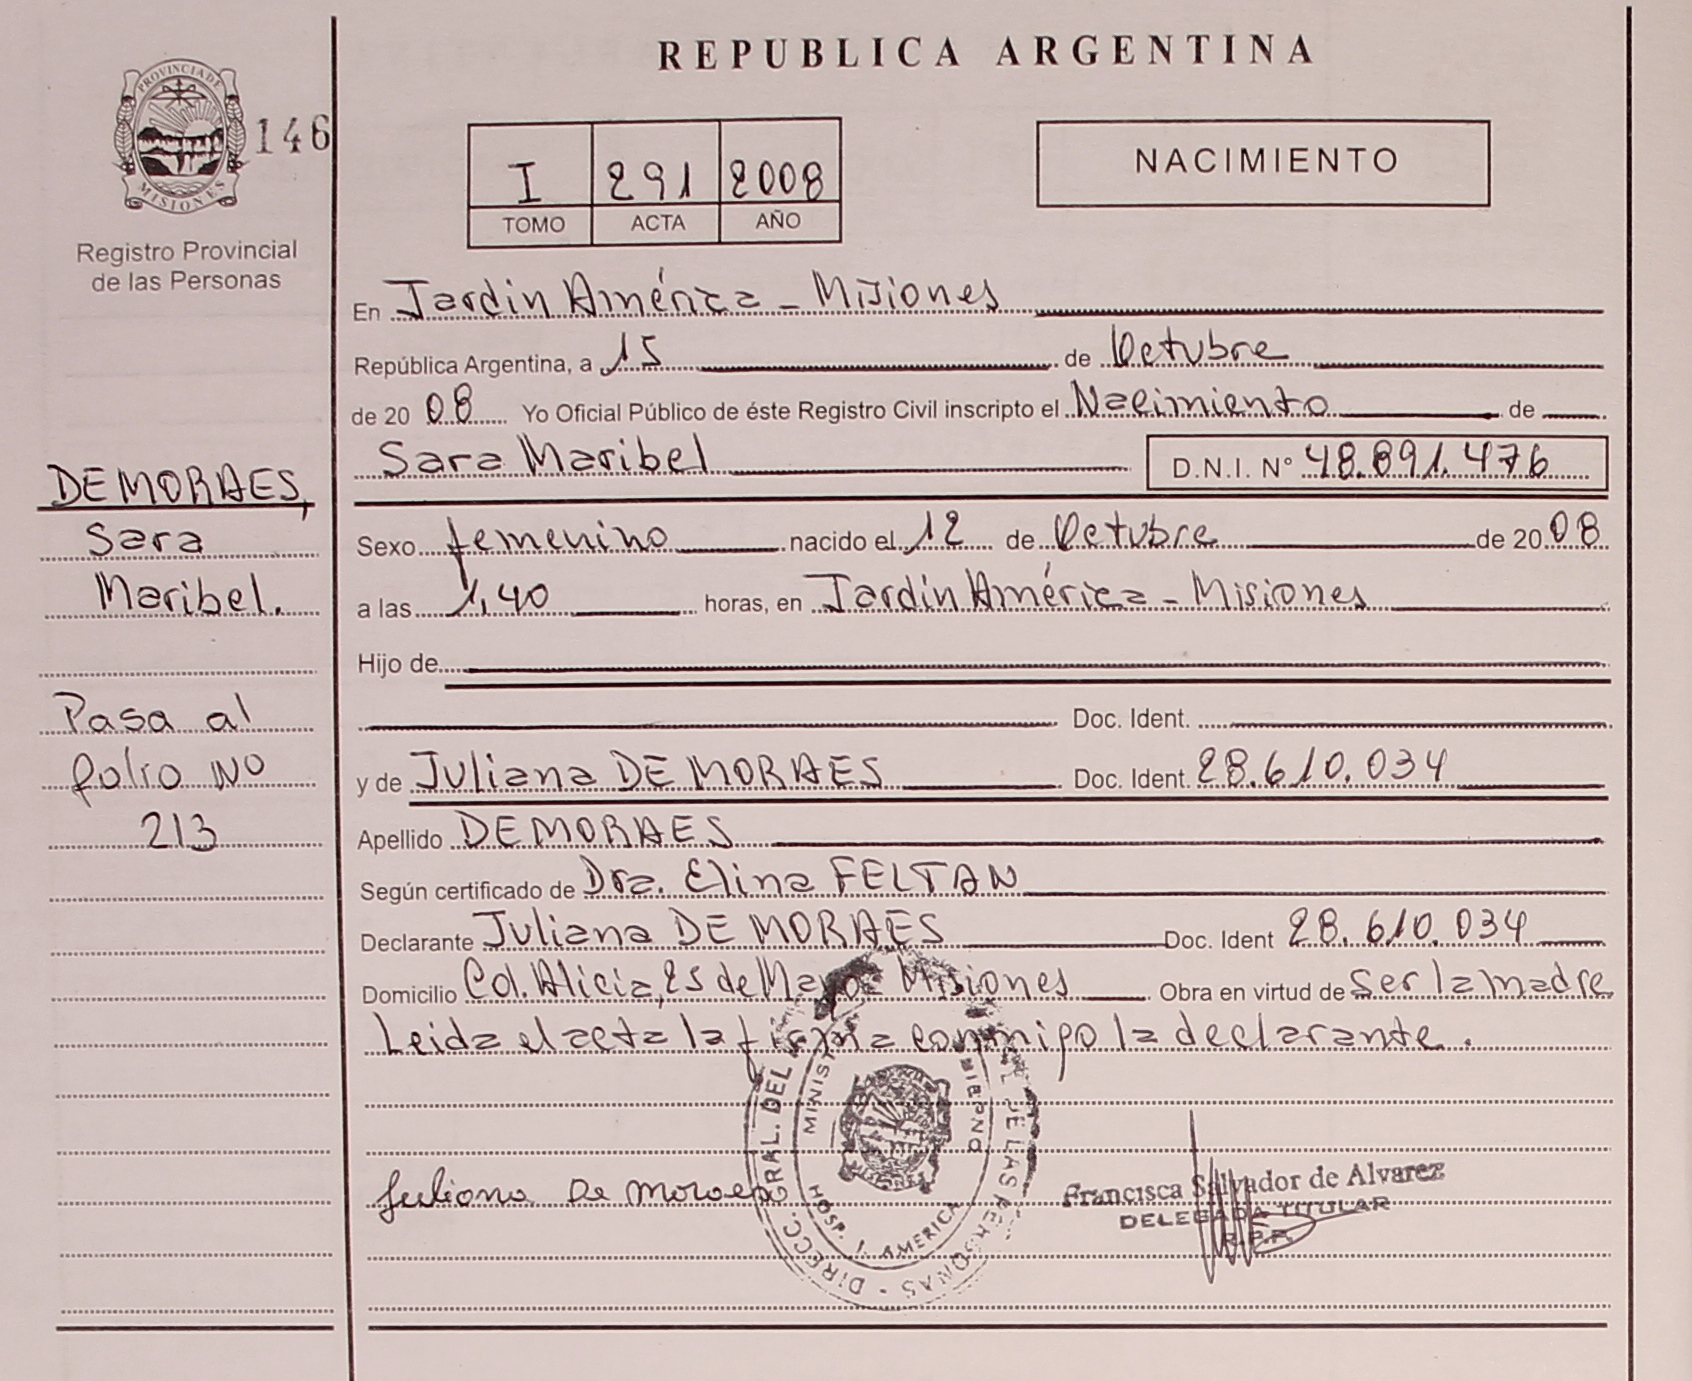 REPUBLICA ARGENTINA
PROVINCIA DE
MISIONES
146
Registro Provincial
de las Personas
I 291 2008
TOMO ACTA AÑO
NACIMIENTO
En Jardin América - Misiones
República Argentina, a 15 de Octubre
de 2008 Yo Oficial Público de éste Registro Civil inscripto el Nacimiento de
Sara Maribel D.N.I. N° 48.891.476
Sexo femenino nacido el 12 de Octubre de 2008
a las 1,40 horas, en Jardín América - Misiones
Hijo de
Doc. Ident.
y de Juliana DE MORAES Doc. Ident. 28.610.034
Apellido DE MORAES
Según certificado de Dra. Elina FELTAN
Declarante Juliana DE MORAES Doc. Ident 28.610.034
Domicilio Col. Alicia, 25 de Mayo Misiones Obra en virtud de Ser la madre
Leida el acta la firma conmigo la declarante.
DE MORAES,
Sara
Maribel.
Pasa al
folio NO
213
Juliana De moraes
DIRECC. GRAL. DEL DE LAS PERSONAS
HOSP. J. AMERICA
Francisca Salvador de Alvarez
DELEGADA TITULAR
R.P.P.